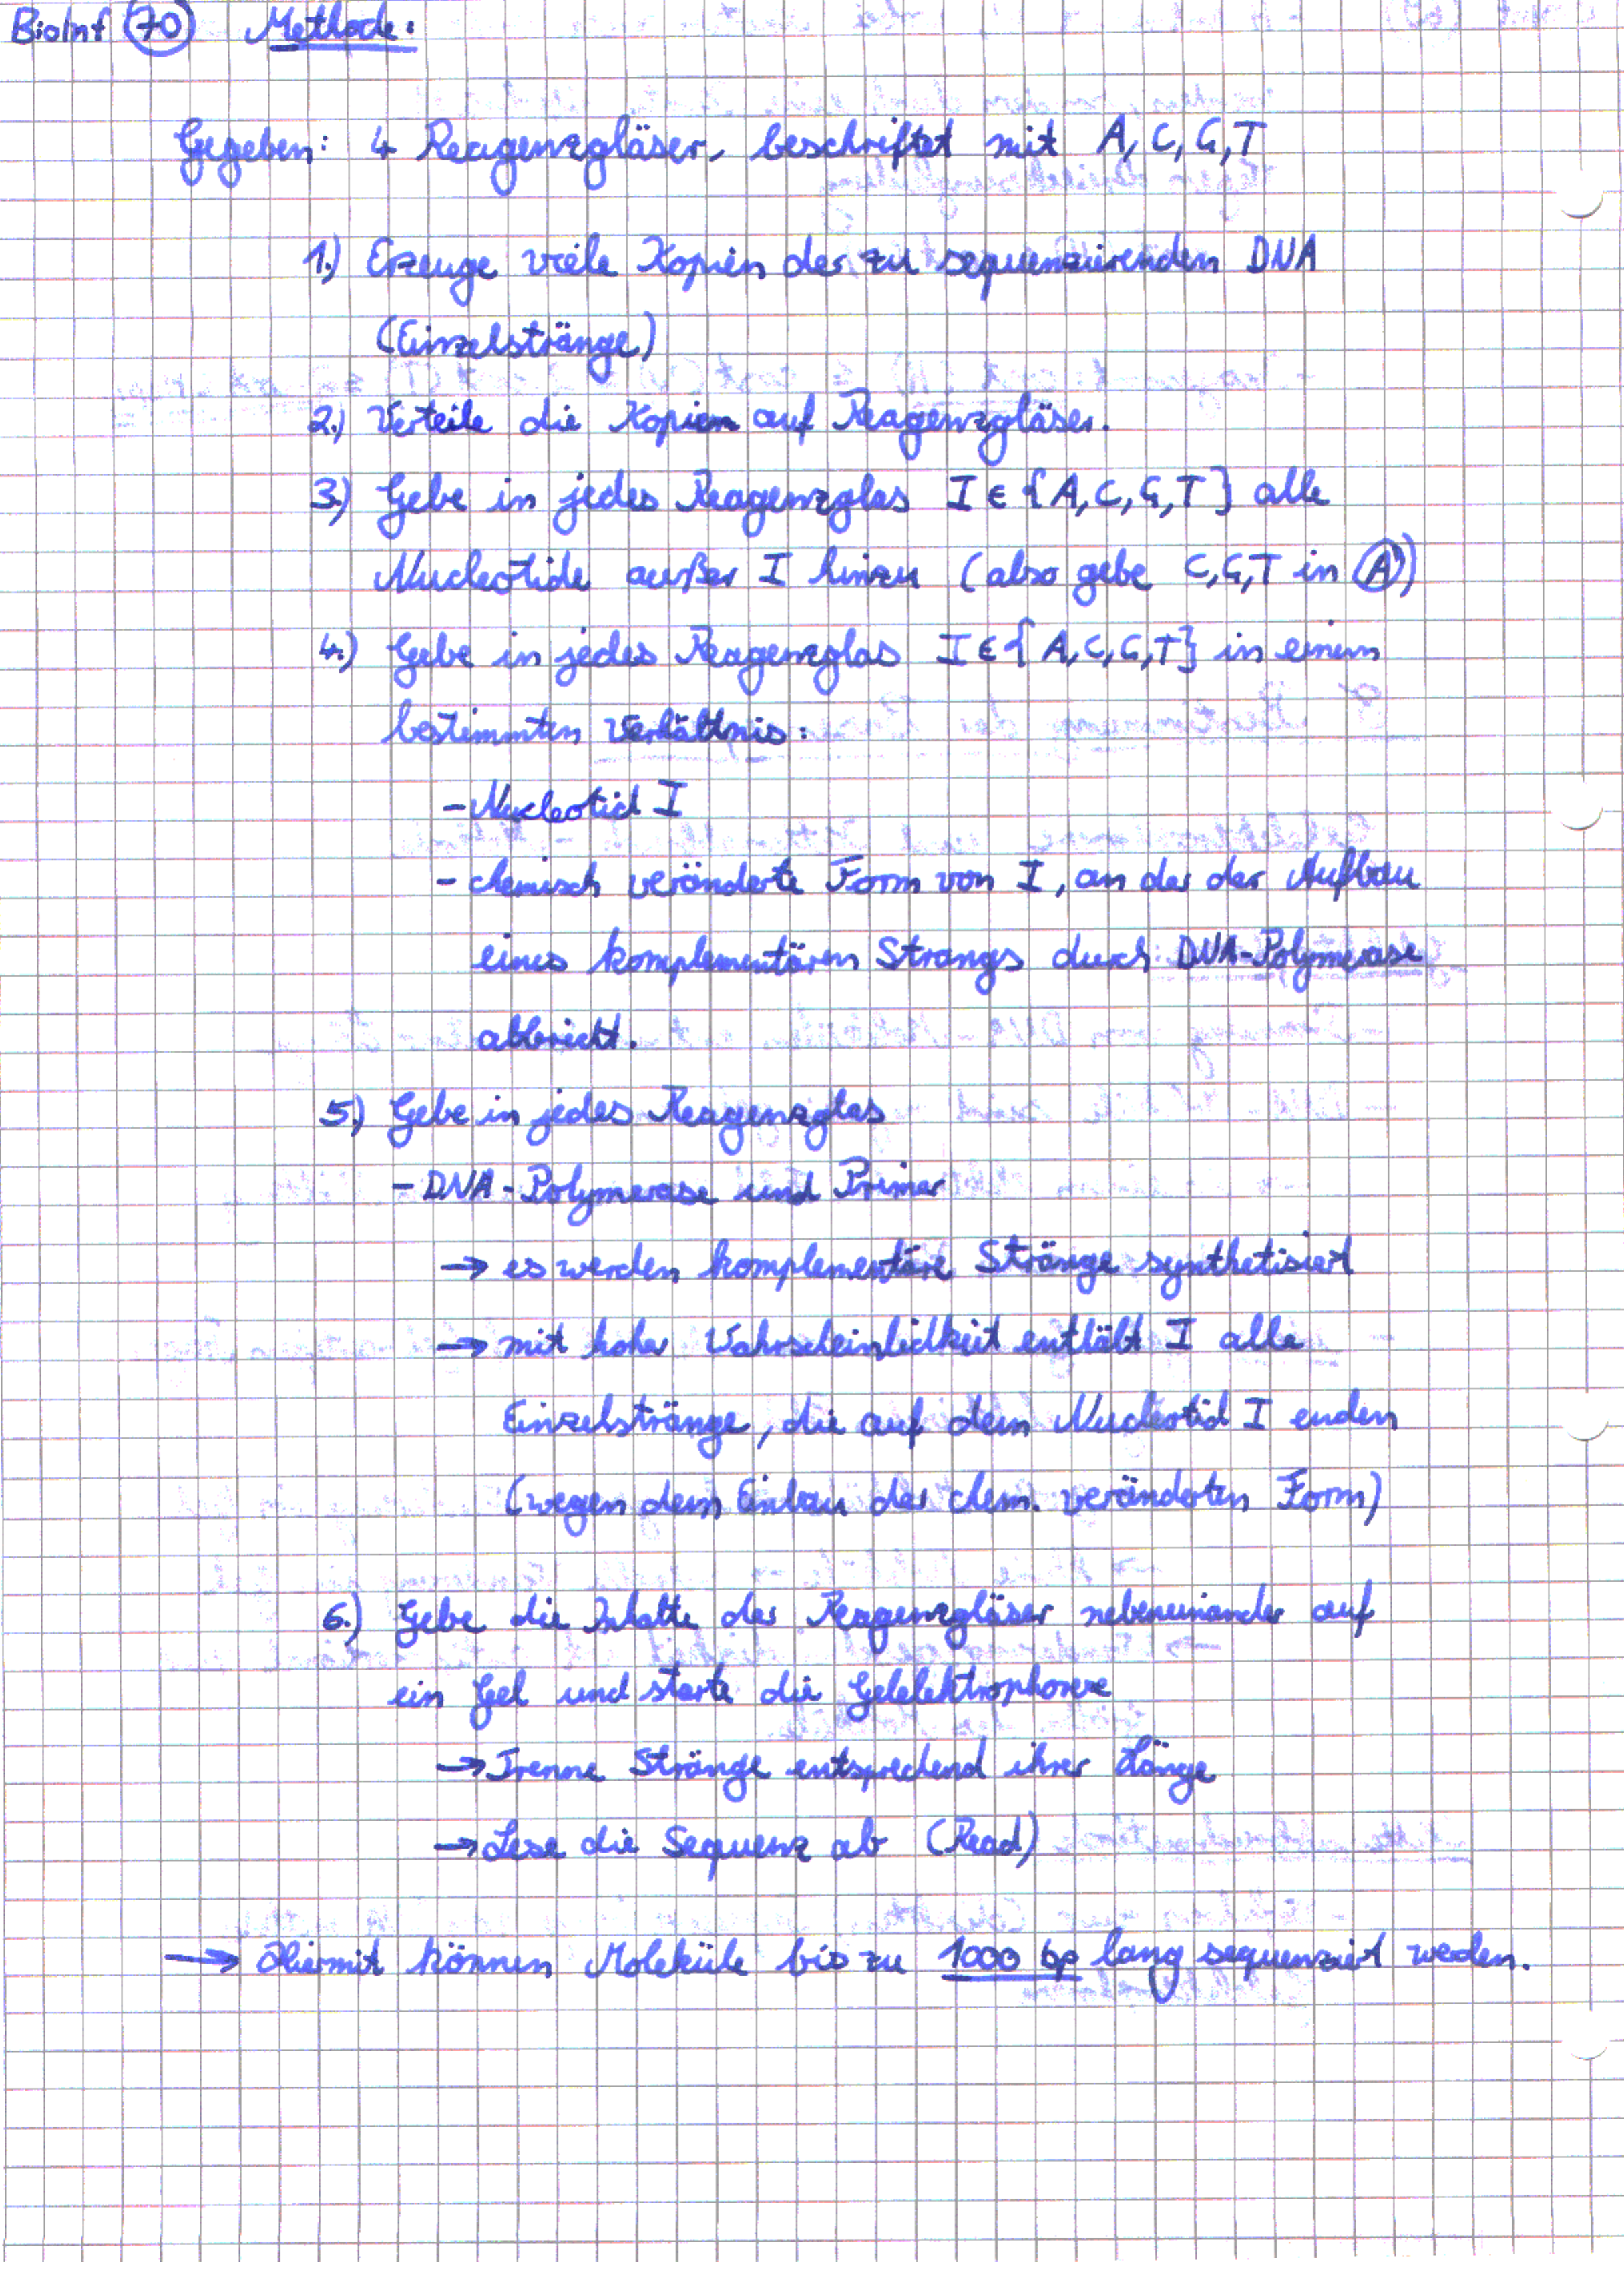 BioInf 70 Methode:
Gegeben: 4 Reagenzgläser, beschriftet mit A, C, G, T
1.) Erzeuge viele Kopien der zu sequenzierenden DNA
(Einzelstränge)
2.) Verteile die Kopien auf Reagenzgläser.
3.) Gebe in jedes Reagenzglas I ∈ {A, C, G, T} alle
Nucleotide außer I hinzu (also gebe C, G, T in A)
4.) Gebe in jedes Reagenzglas I ∈ {A, C, G, T} in einem
bestimmten Verhältnis:
- Nucleotid I
- chemisch veränderte Form von I, an der der Aufbau
eines komplementären Strangs durch DNA-Polymerase
abbricht.
5.) Gebe in jedes Reagenzglas
- DNA-Polymerase und Primer
→ es werden komplementäre Stränge synthetisiert
→ mit hoher Wahrscheinlichkeit enthält I alle
Einzelstränge, die auf dem Nucleotid I enden
(wegen dem Einbau der chem. veränderten Form)
6.) Gebe die Inhalte der Reagenzgläser nebeneinander auf
ein Gel und starte die Gelelektrophorese
→ Trenne Stränge entsprechend ihrer Länge
→ Lese die Sequenz ab (Read)
→ Hiermit können Moleküle bis zu 1000 bp lang sequenziert werden.